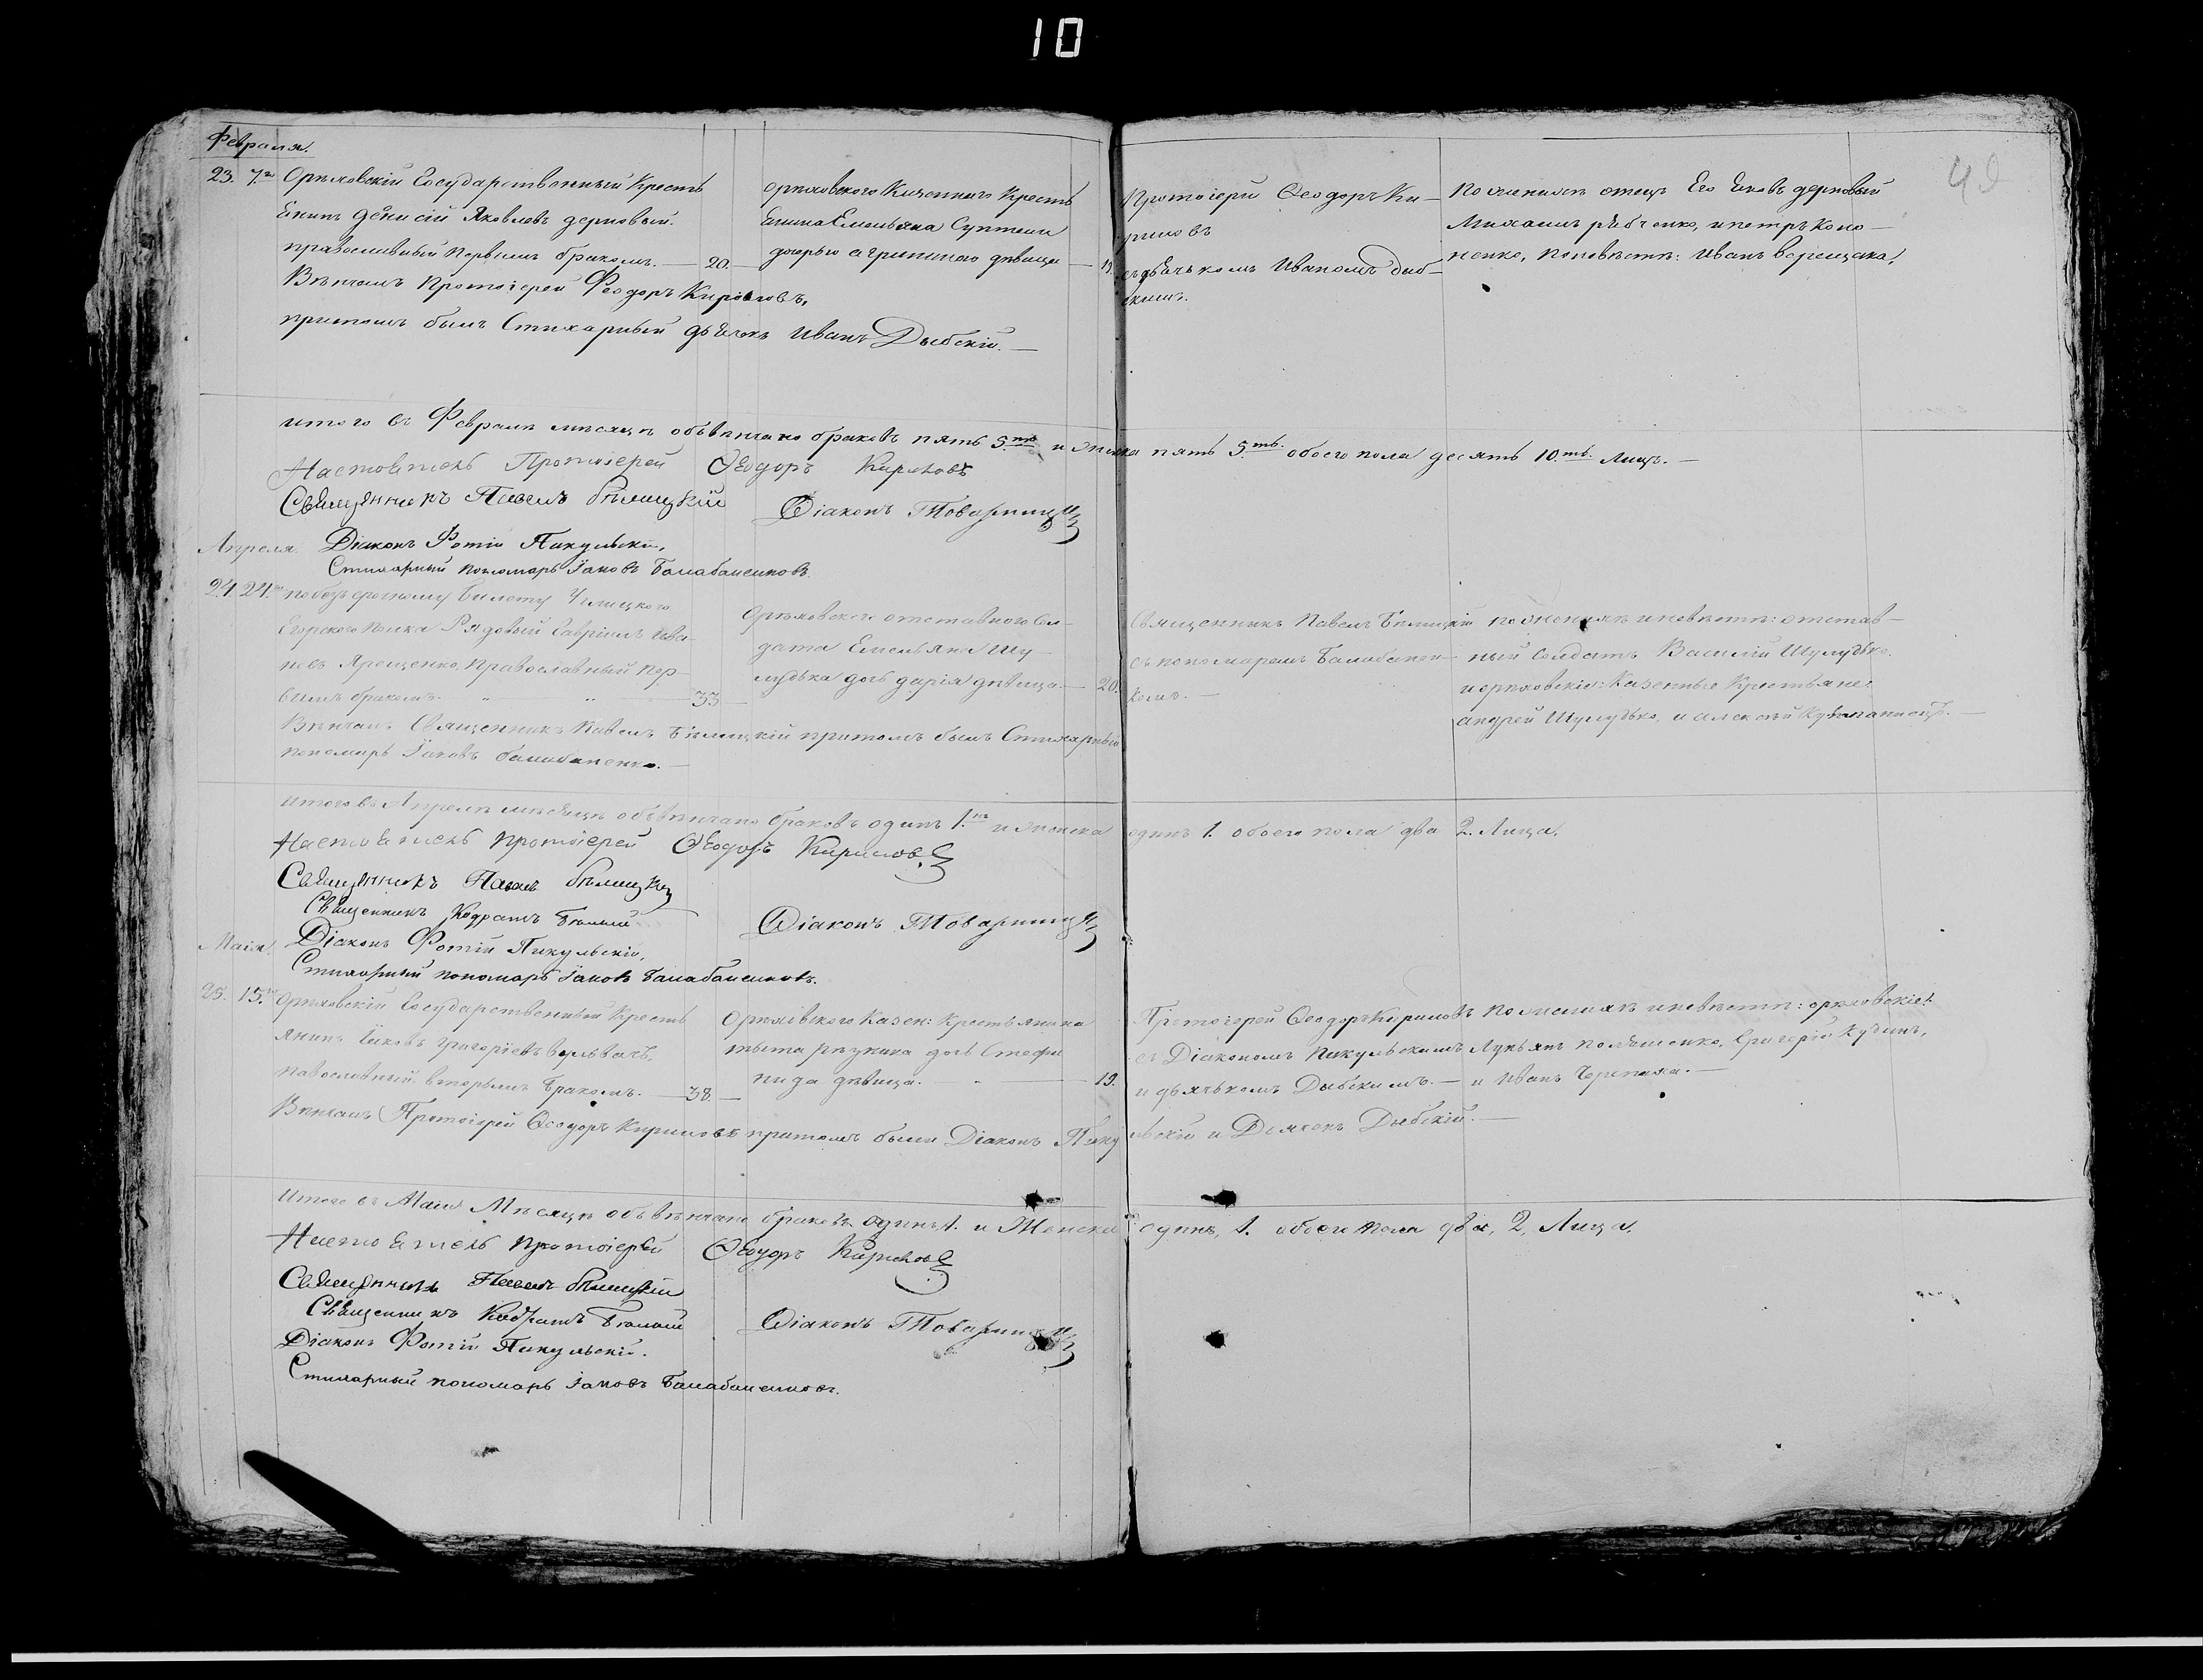 10
Февраля.
23. 7го Орѣховскій Государственный Кресть
янинъ Денисій Яковлевъ дерновый.
православный первымъ бракомъ. — 20. —
Орѣховскаго Казеннаго кресть
янина Емельяна
дочерью дѣвица — 19.
Протоіерей Ѳеодоръ Ки-
риловъ
съ дьячькомъ Иваномъ Дыб-
скимъ.
По женихѣ отецъ Его Яковъ дерновый
Михаилъ рябченко, и петръ Коно-
ненко, по невѣстѣ: Иванъ верещака.
Вѣнчалъ Протоіерей Феодоръ Кириловъ,
притомъ былъ Стихарный дьячокъ Иванъ Дыбскій. —
итого въ Февралѣ мѣсяцѣ обвѣнчано браковъ пять 5.ть и женска пять 5.ть обоего пола десять 10.ть Лицъ. —
Настоятель Протоіерей Ѳеодоръ Кириловъ
Священникъ Павелъ бѣлицкій Діаконъ
Апреля. Діаконъ Фотій Пикульскій,
Стихарный пономарь Іаковъ Балабаненковъ.
24. 24.го по безъсрочному билету Углицкого
Егорского полка Рядовый Гавріилъ Ива-
новъ Ярещенко, православный пер-
вымъ бракомъ. " " — 33 —
Орѣховскаго отставного Сол-
дата Емельяна Шу-
лудька дочь дарія дѣвица. — 20.
Священникъ Павелъ Бѣлицкій
съ пономаремъ Балабанен-
комъ. —
по женихѣ и невѣстѣ: отстав-
ный Солдатъ Василій Шулудько.
и орѣховскіе: Казенные Крестьяне:
андрей Шулудько, и алексѣй
Вѣнчалъ Священникъ Павелъ Бѣлицкій притомъ былъ Стихарный
пономарь Іаковъ балабаненко. —
итого въ Апрелѣ мѣсяцѣ обвѣнчано браковъ одинъ 1.нъ и женска одинъ 1. обоего пола два 2. Лица.
Настоятель протоіерей Ѳеодоръ Кириловъ
Священникъ Павелъ бѣлицкій
Священникъ Кодратъ Діаконъ
Маія. Діаконъ Фотій Пикульскій,
Стихарный пономарь Іаковъ Балабаненковъ.
25. 15.го Орѣховскій Государственный Кресть
янинъ Іаковъ григоріевъ
павославный вторымъ бракомъ. — 38. —
Орѣховского Казен: Крестьянина
тыта рѣзника дочь Стефа
нида дѣвица. — 19.
Протоіерей Ѳеодоръ Кириловъ
съ Діакономъ Пикульскимъ
и дьячькомъ Дыбскимъ. —
по женихѣ и невѣстѣ: орѣховскіе:
Лукьянъ Григорій Кудинъ,
и Иванъ Черепаха. —
Вѣнчалъ Протоіерей Ѳеодоръ Кириловъ притомъ были Діаконъ Пикульскій и Дьячекъ Дыбскій. —
Итого въ Маіѣ Мѣсяцѣ обвѣнчано браковъ одинъ 1. и Женска одинъ, 1. обоего пола два, 2, Лица.
Настоятель протоіерей Ѳеодоръ Кириловъ
Священникъ Павелъ бѣлицкій
Священникъ Кодратъ Діаконъ
Діаконъ Фотій Пикульскій.
Стихарный пономарь Іаковъ Балабаненковъ.